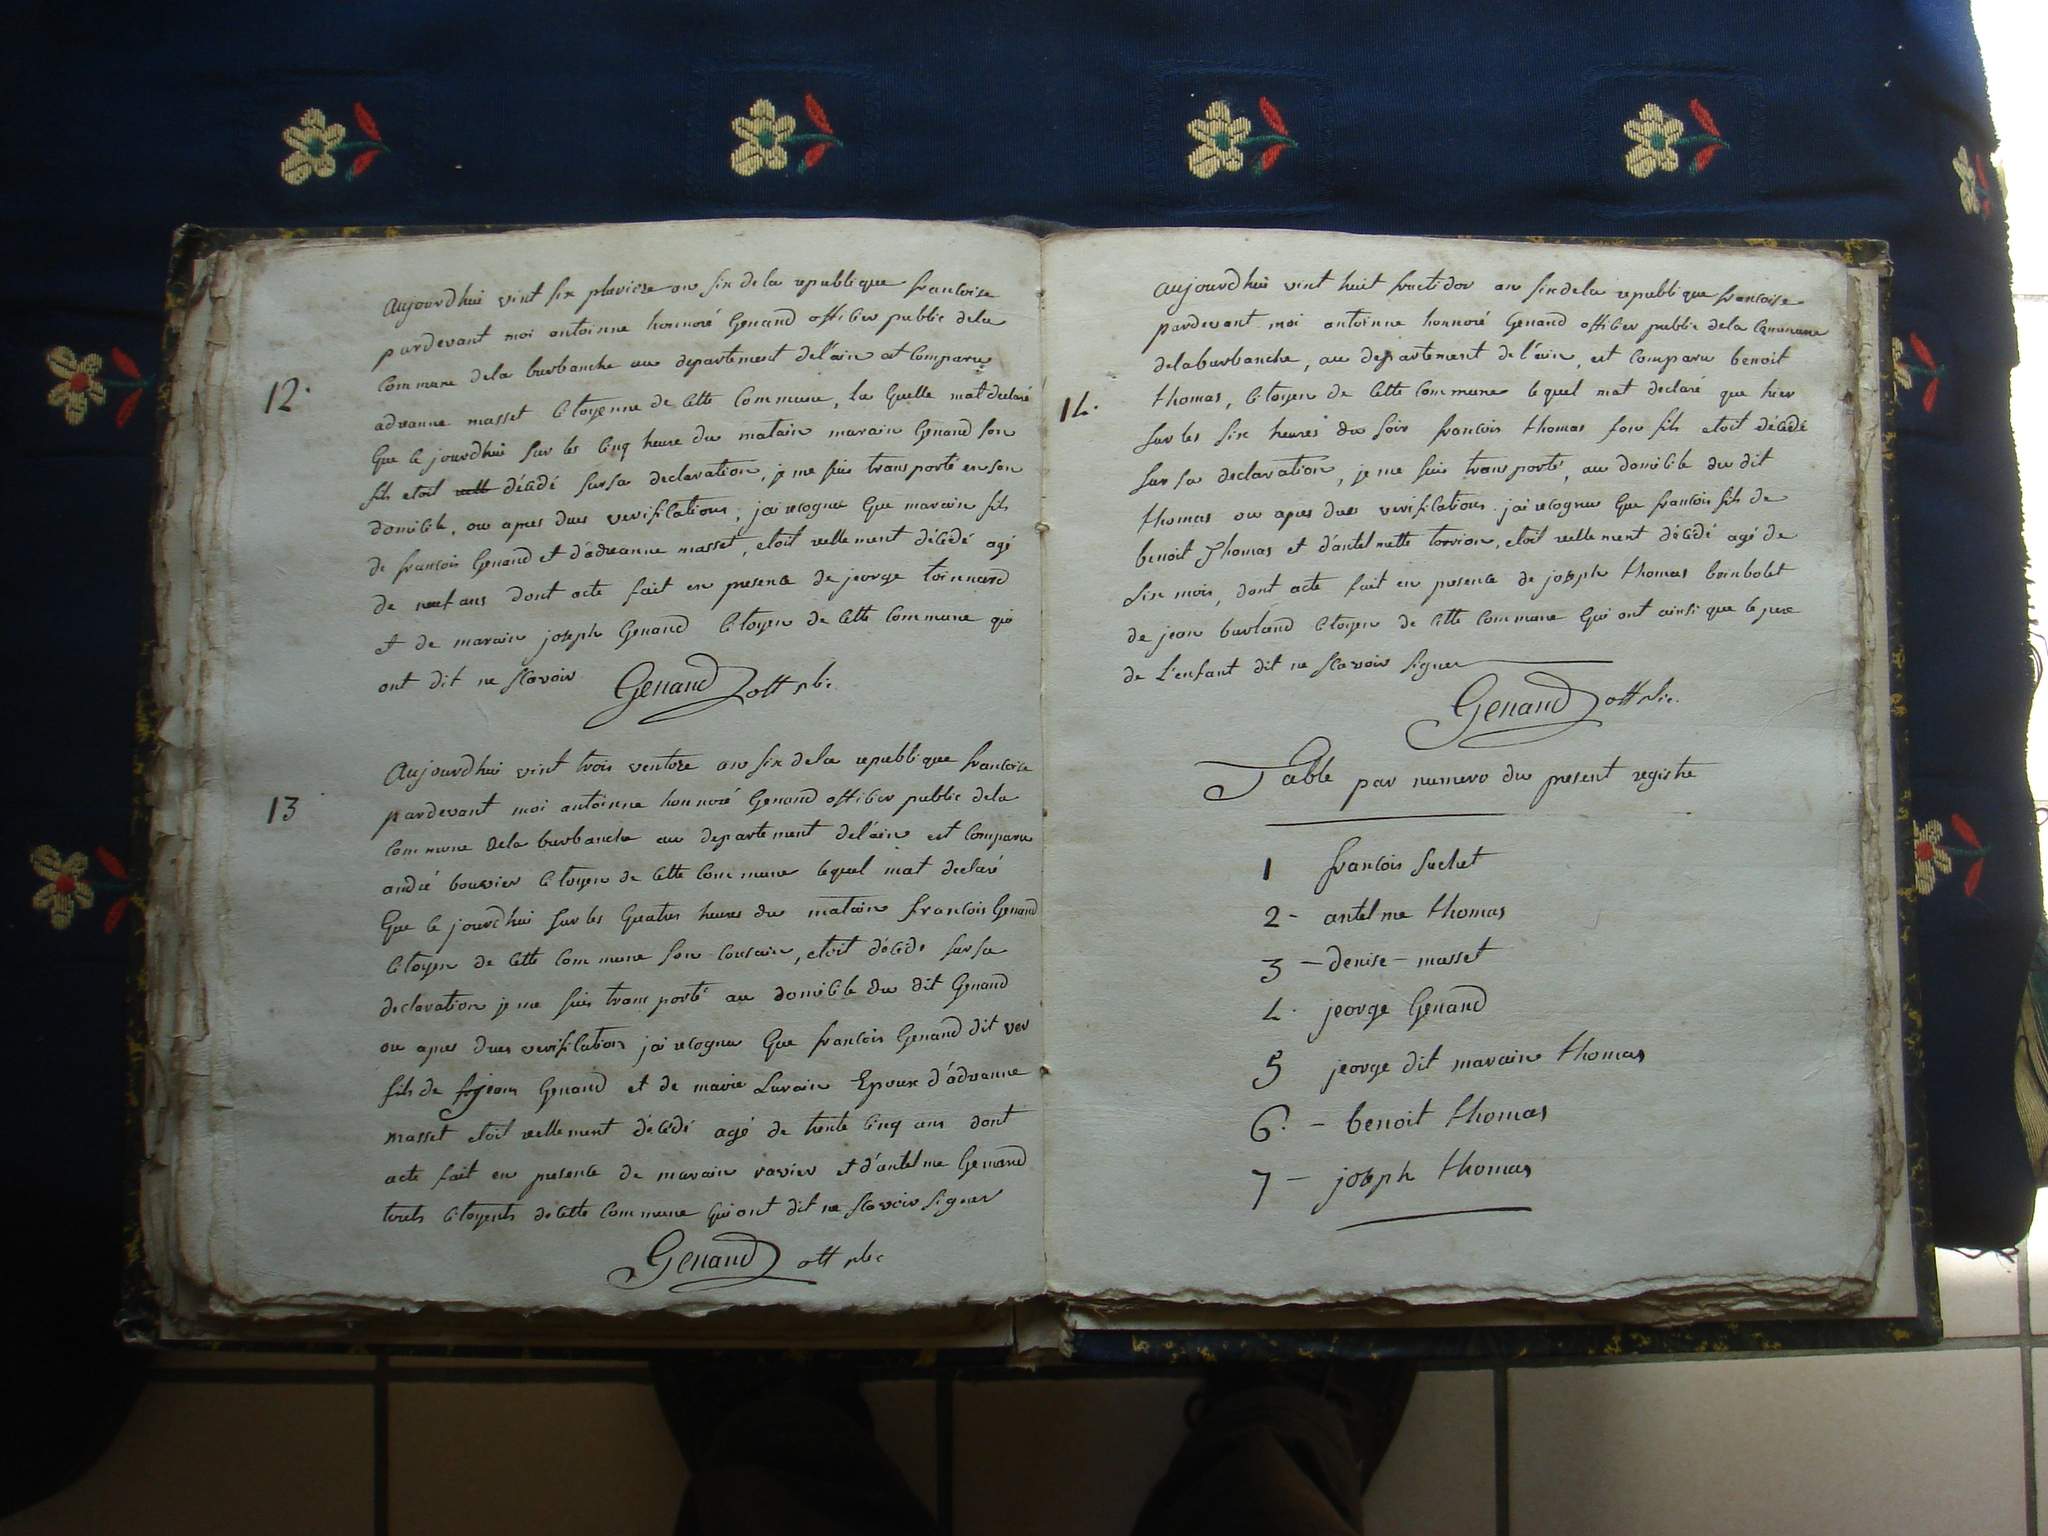 12.
Aujourdhui vint six pluviose an six de la republique francoise
pardevant moi antoinne honnoré Genand officier public dela
commune dela burbanche au departement delain at comparu
advanne masset citoyenne de cette commune, la quelle mat declaré
que ce jourdhui sur les cinq heure du matain marain Genand son
fils etoit décédé sur sa declaration, je me suis transporté en son
domicile, ou apres dues verifications, jai recognu que marain fils
de francois Genand et d'advanne masset, etoit reellement décédé agé
de neuf ans dont acte fait en presence de jeorge toinnard
et de marain joseph Genand citoyen de cette commune qui
ont dit ne scavoir
Genand off pbic
13
Aujourdhui vint trois ventose an six dela republique francoise
pardevant moi antoinne honnoré Genand officier public dela
commune dela burbanche au departement delain est comparu
andré bouvier citoyen de cette commune lequel mat declaré
que ce jourdhui sur les quatres heures du matain francois Genand
citoyen de cette commune son cousain, etoit décédé sur sa
declaration je me suis transporté au domicile du dit Genand
ou apres dues verification jai recognu que francois Genand dit ver
fils de jean Genand et de marie Lurain Epoux d'advanne
masset etoit reellement décédé agé de trente cinq ans dont
acte fait en presence de marain ravier et d'antelme Genand
touts citoyents de cette commune qui ont dit ne scavoir signer
Genand off pbic
14.
Aujourdhui vint huit fructidor an six dela republique francoise
pardevant moi antoinne honnoré Genand officier public dela commune
dela burbanche, au departement de l'ain, est comparu benoit
thomas, citoyen de cette commune lequel mat declaré que hier
sur les six heures du soir francois thomas son fils etoit décédé
sur sa declaration, je me suis transporté, au domicile du dit
thomas ou apres dues verifications jai recognu que francois fils de
benoit Thomas et d'antelmette torvion, etoit reellement décédé agé de
six mois, dont acte fait en presence de joseph thomas boinbolet
de jean burland citoyen de cette commune qui ont ainsi que le pere
de L'enfant dit ne scavoir signer
Genand off pbic.
Table par numero du present registre
1 francois suchet
2 - antelme thomas
3 - denise - masset
4. jeorge Genand
5 jeorge dit marain thomas
6. - benoit thomas
7 - joseph thomas